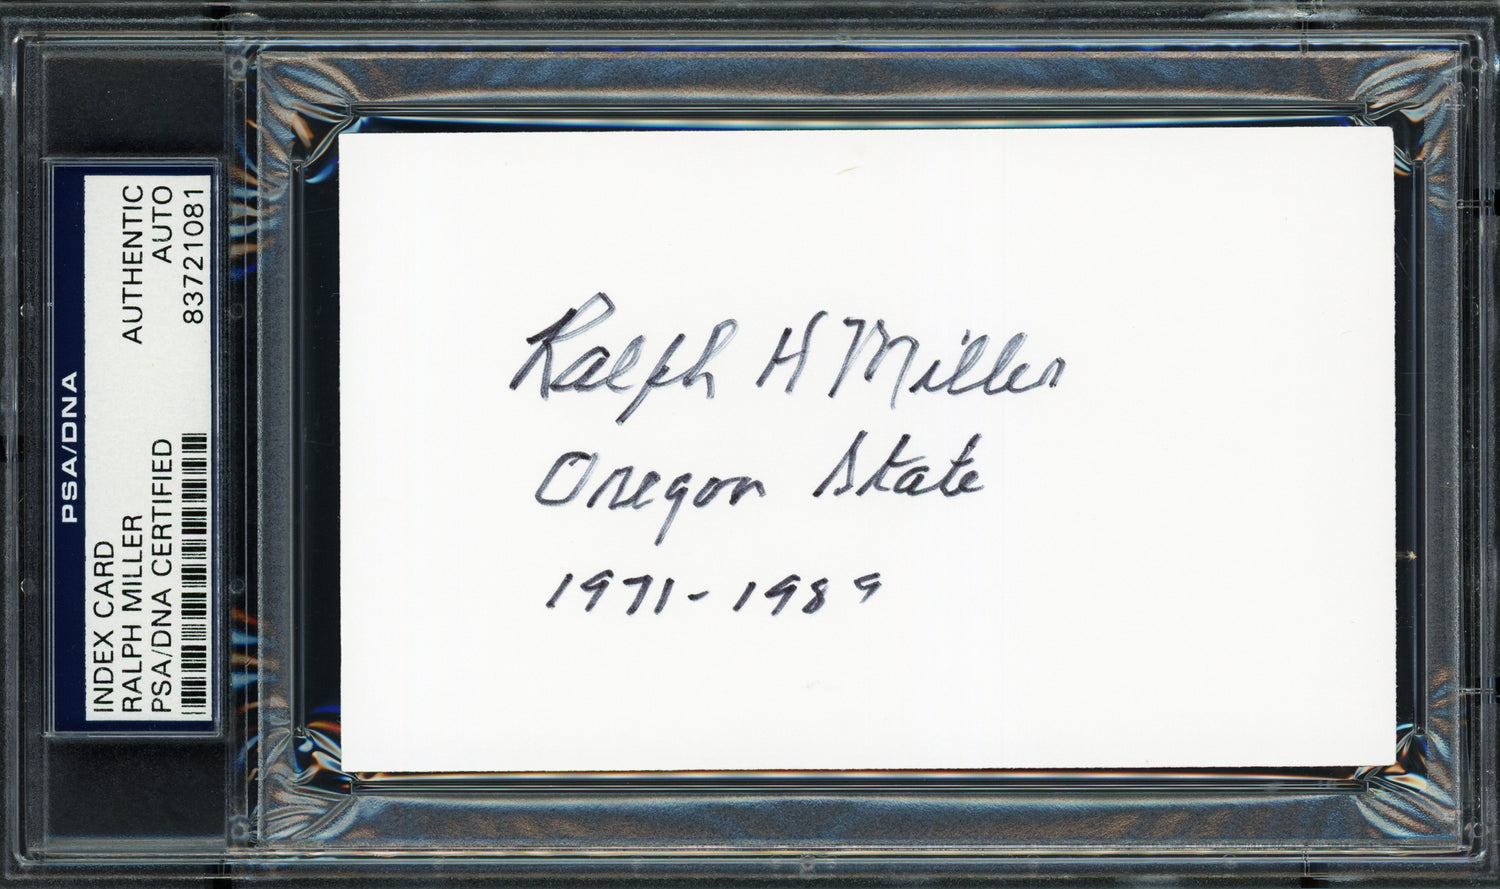 PSA/DNA
INDEX CARD
RALPH MILLER
PSA/DNA CERTIFIED
AUTHENTIC
AUTO
83721081
Ralph H Miller
Oregon State
1971-1989